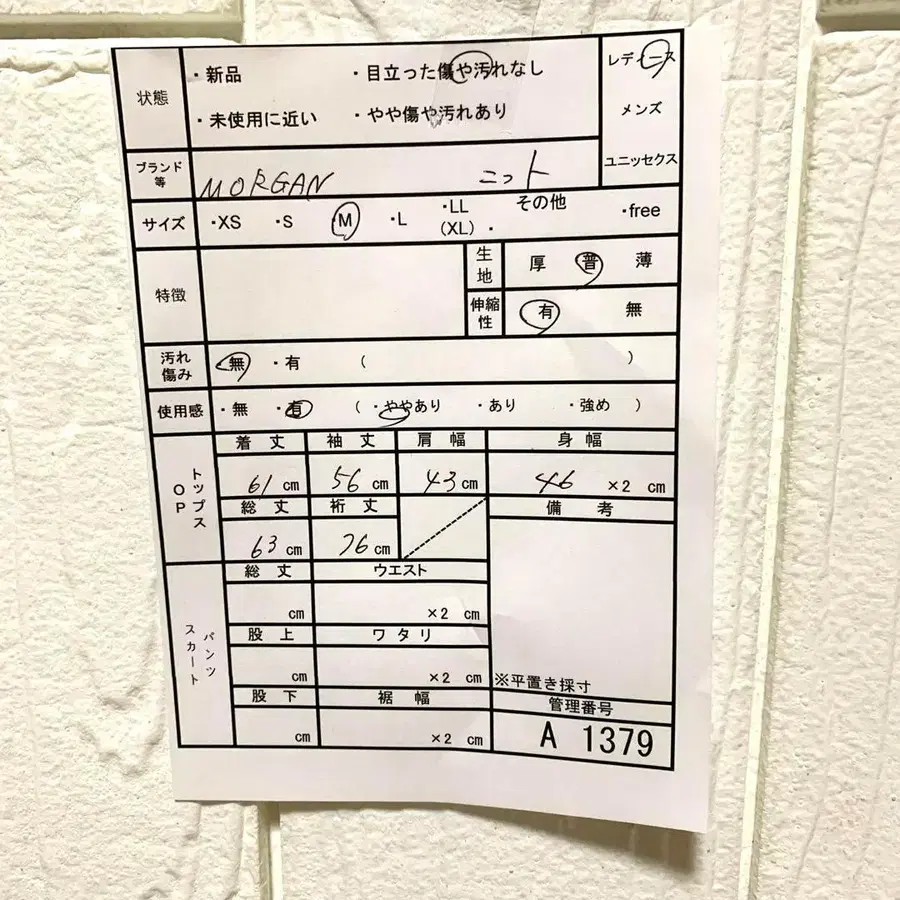 状態 ・新品 ・目立った傷や汚れなし レディース
・未使用に近い ・やや傷や汚れあり メンズ
ブランド等 MORGAN ニット ユニセックス
サイズ ・XS ・S ・M ・L ・LL (XL) ・その他 ・free
特徴 生地 厚 普 薄
伸縮性 有 無
汚れ傷み ・無 ・有 ( )
使用感 ・無 ・有 ( ・ややあり ・あり ・強め )
トップス OP
着丈 袖丈 肩幅 身幅
61 cm 56 cm 43 cm 46 ×2 cm
総丈 裄丈 備考
63 cm 76 cm
パンツ スカート
総丈 ウエスト
cm ×2 cm
股上 ワタリ
cm ×2 cm
※平置き採寸
股下 裾幅 管理番号
cm ×2 cm A 1379